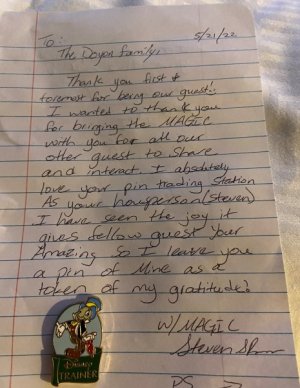 To: 5/21/22
The Doyon Family,
Thank you first &
foremost for being our guest!
I wanted to thank you
for bringing the MAGIC
with you for all our
other guest to share
and interact. I absolutely
love your pin trading station
As your houseperson (Steven)
I have seen the joy it
gives fellow guest your
Amazing so I leave you
a pin of Mine as a
token of my gratitude!
W/MAGIC
Steven
PS
Disney
TRAINER